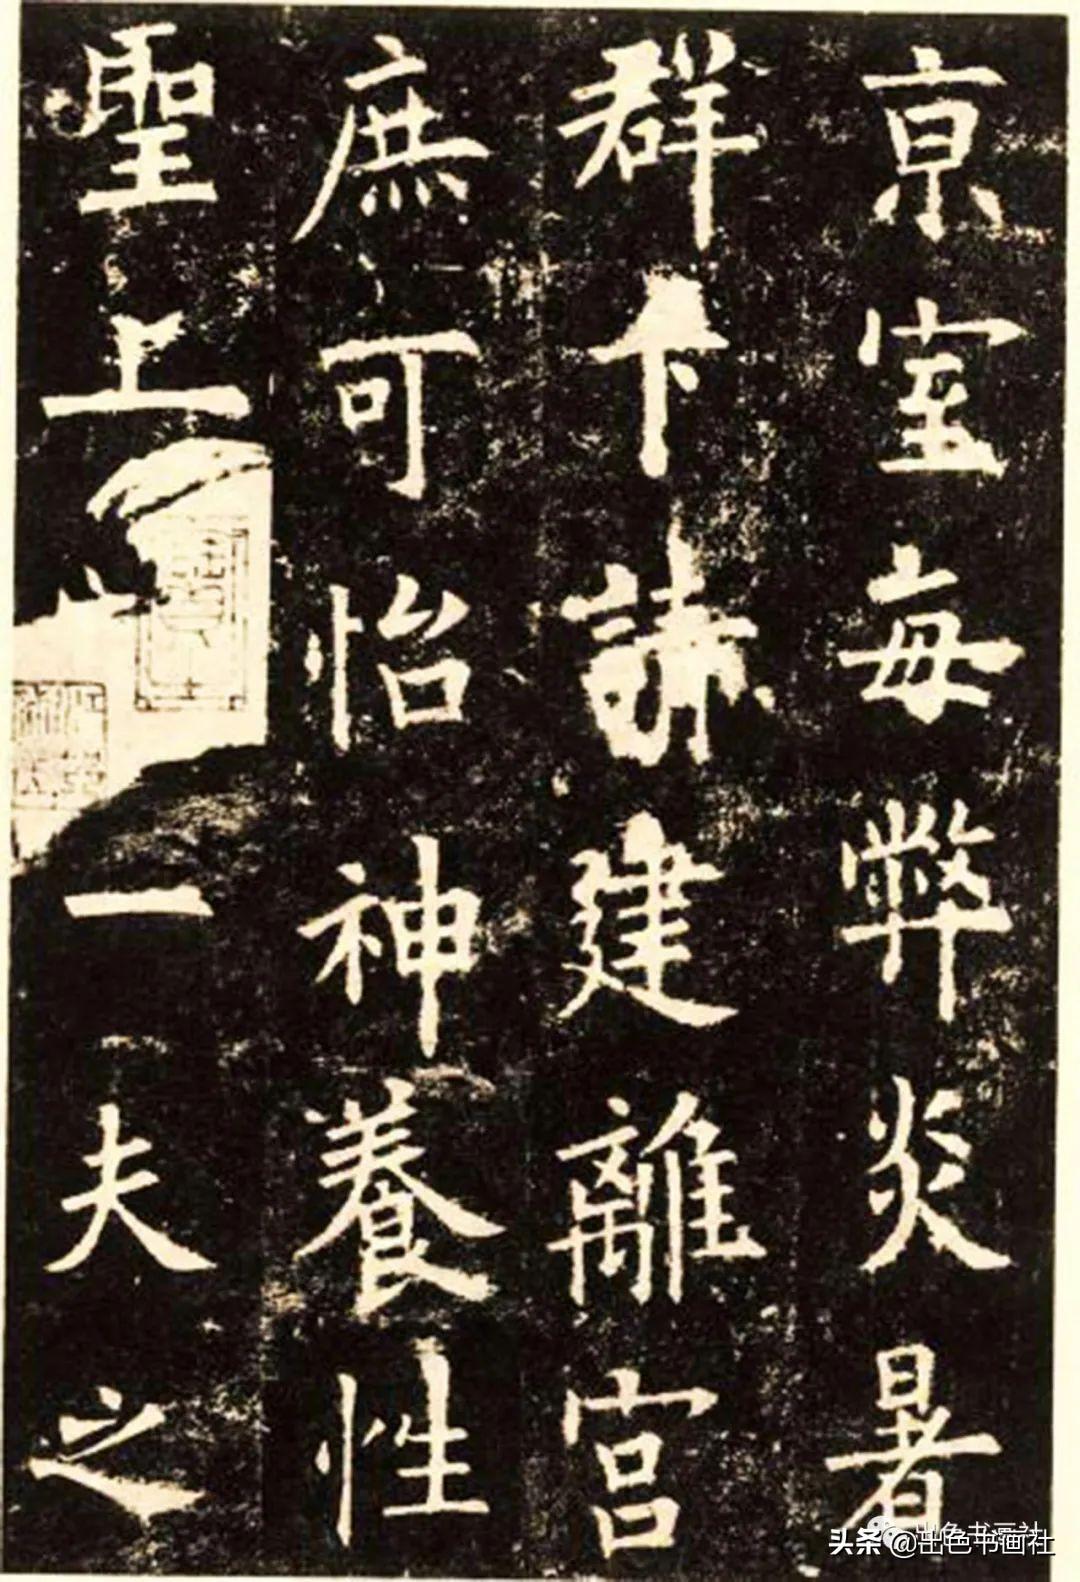 京室每弊炎暑
群下請建離宮
庶可怡神養性
聖上
一夫之
头条 @出色书画社
出色书画社